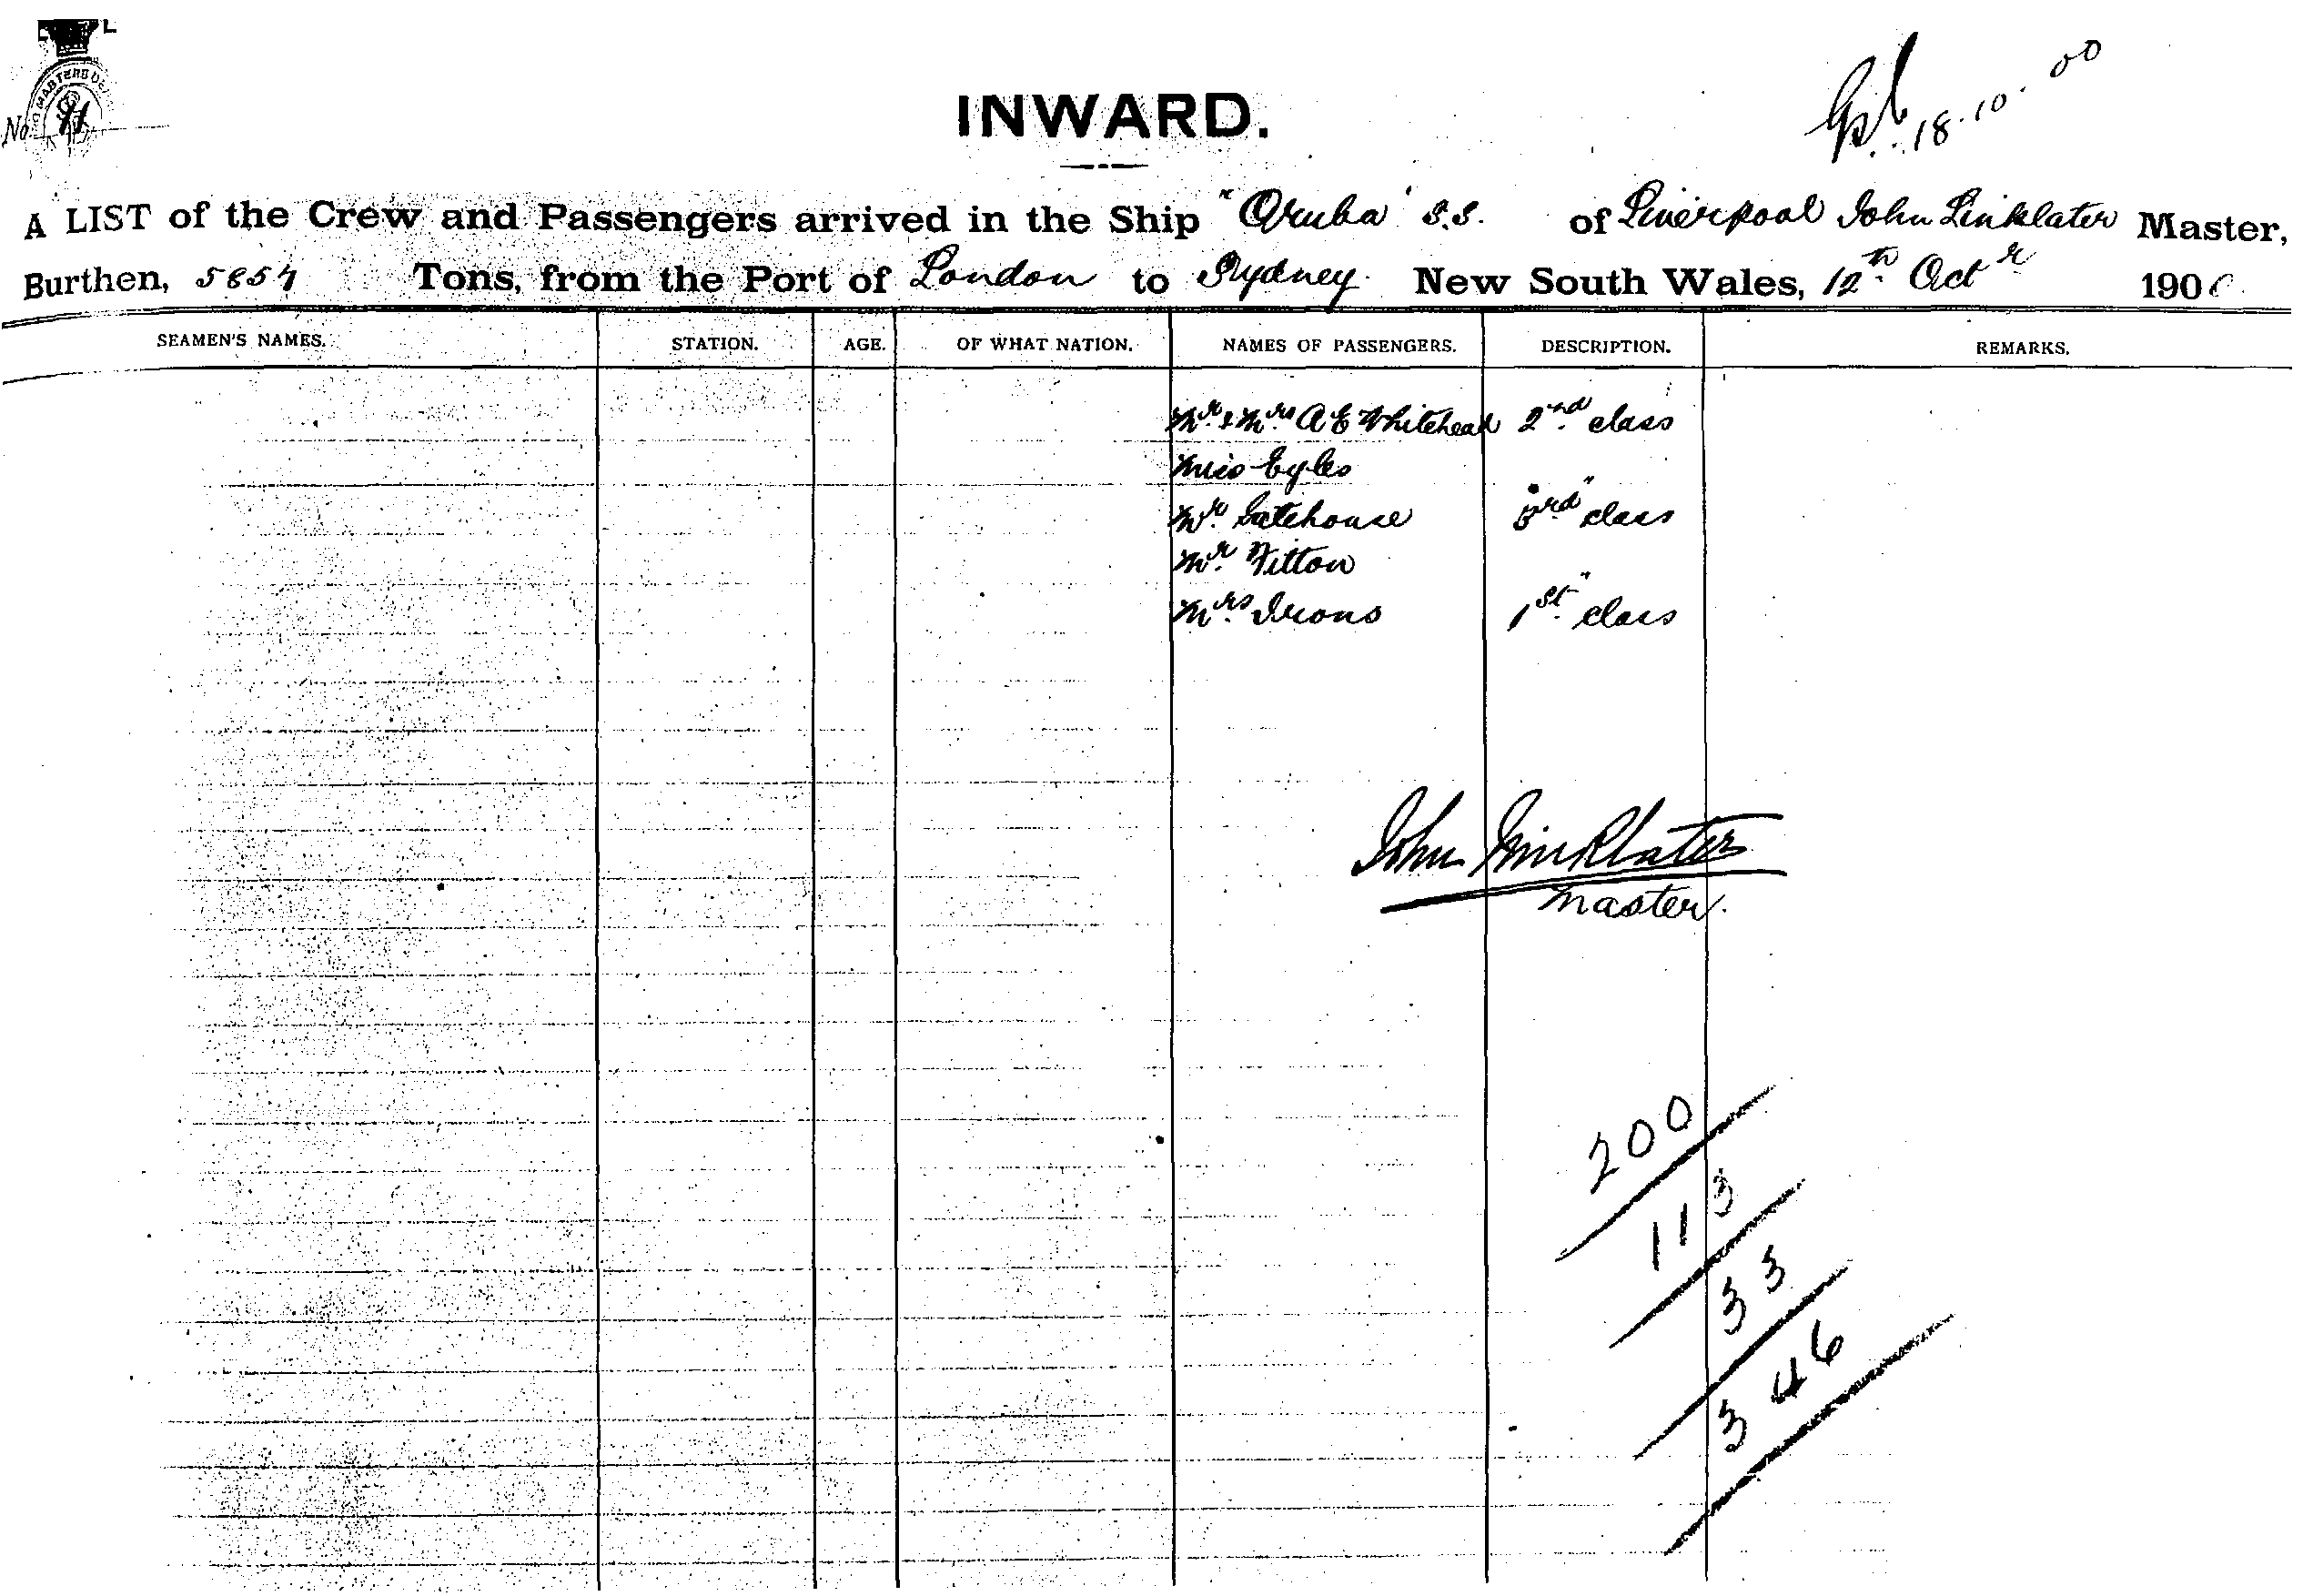 No.
INWARD.
18.10.00
A LIST of the Crew and Passengers arrived in the Ship "Oruba" S.S. of Liverpool John Linklater Master,
Burthen, 5857 Tons, from the Port of London to Sydney. New South Wales, 12th Octr 1900
SEAMEN'S NAMES. STATION. AGE. OF WHAT NATION. NAMES OF PASSENGERS. DESCRIPTION. REMARKS.
Mr & Mrs A E Whitehead 2nd class
Miss Eyles "
Mr Gatehouse 3rd class
Mr Fitton "
Mrs Irons 1st class
John Linklater
Master.
200
113
33
346